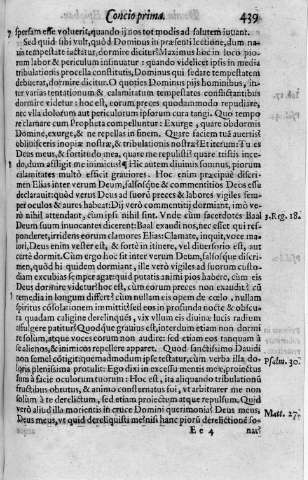 Concio prima.
439
spersam esse voluerit, quando ij nos tot modis ad salutem iuuant.
Sed quid sibi vult, quòd Dominus in præsenti lectione, dum na-
uis tempestate iactatur, dormire dicitur? Maximus hoc in loco pio-
rum labor & periculum insinuatur: quando videlicet ipsis in media
tribulationis procella constitutis, Dominus qui sedare tempestatem
debuerat, dormire dicitur. O quoties Dominus pijs hominibus, in-
ter varias tentationum & calamitatum tempestates constitutis
dormire videtur: hoc est, eorum preces quodammodo repudiare,
nec vlla dolorum aut periculorum ipsorum cura tangi. Quo tempo
re clamare cum Propheta compelluntur: Exurge, quare obdormis
Domine, exurge, & ne repellas in finem. Quare faciem tuã auertis?
obliuisceris inopiæ nostræ, & tribulationis nostræ? Et iterum: Tu es
Deus meus, & fortitudo mea, quare me repulisti? quare tristis ince-
do, dum affligit me inimicus? Hic autem diuinus somnus, piorum
calamitates multò efficit grauiores. Hoc enim præcipuè discri-
men Elias inter verum Deum, falsosque & commentitios Deos esse
declarauit: quòd verus Deus ad suorũ preces & labores vigiles sem-
per oculos & aures habeat: Dij verò commentitij dormiant, imò ve-
rò nihil attendant, cùm ipsi nihil sint. Vnde cùm sacerdotes Baal
3. Reg. 18.
Deum suum inuocantes dicerent: Baal exaudi nos, nec esset qui res-
ponderet, irridens eorum clamores Elias: Clamate, inquit, voce ma-
iori, Deus enim vester est, & fortè in itinere, vel diuersorio est, aut
certè dormit. Cùm ergo hoc sit inter verum Deum, falsosque discri-
men, quòd hi quidem dormiant, ille verò vigiles ad suorum custo-
diam excubias semper agat: quid putatis animi pios habere, cùm eis
Deus dormire videtur? hoc est, cùm eorum preces non exaudit? cũ
remedia in longum differt? cùm nullam eis opem de cœlo, nullam
spiritus cõsolationem immittit? sed eos in profunda nocte & obscu
ra quadam caligine derelinquens, vix vllum eis diuinæ lucis radium
affulgere patitur? Quodque grauius est, interdum etiam non dormi
re solùm, atque voces eorum non audire: sed etiam eos tanquam à
se alienos, & inimicos repellere apparet. Quod sanctissimo Dauidi
non semel cõtigit: quemadmodum ipse testatur, cùm verba illa do-
loris plenissima protulit: Ego dixi in excessu mentis meæ, proiectus
Psalm. 30.
sum à facie oculorum tuorum: Hoc est, ita aliquando tribulationũ
fluctibus obrutus, & animo consternatus fui, vt arbitrarer me non
solùm à te derelictum, sed etiam proiectum atque repulsum. Quid
verò aliud illa morientis in cruce Domini querimonia? Deus meus,
Matt. 27.
Deus meus, vt quid dereliquisti me? nisi hanc piorũ derelictionẽ so-
E e 4
nat?